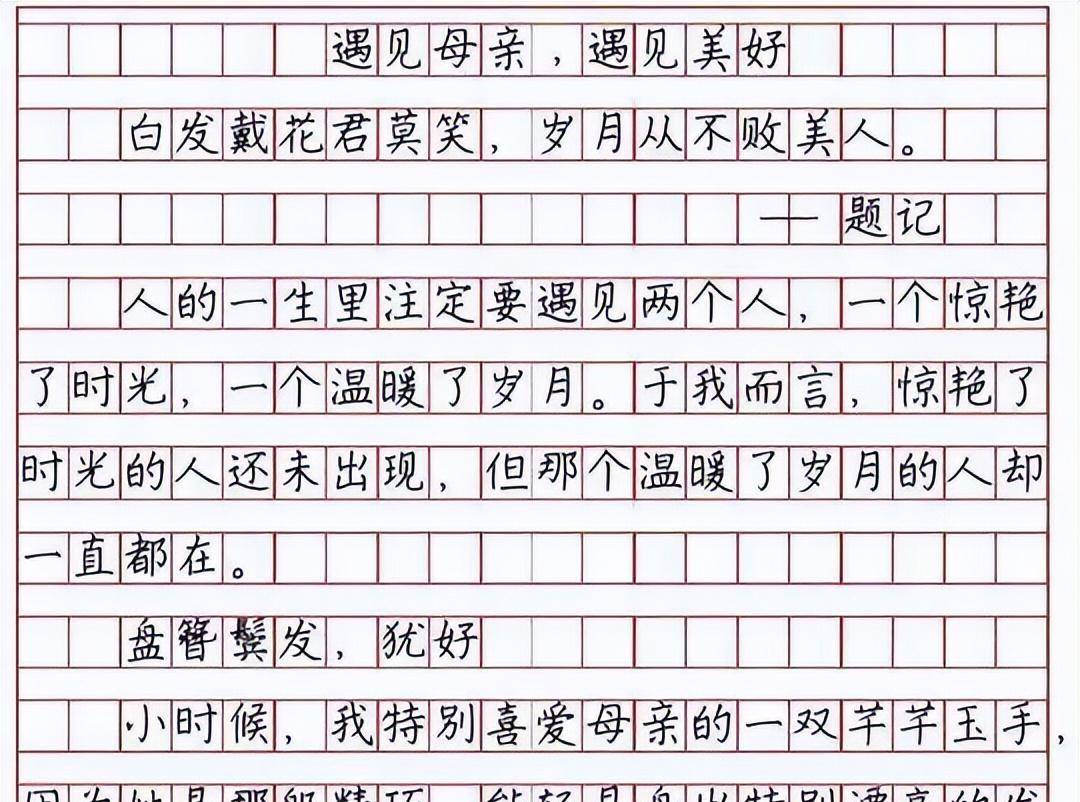 遇见母亲，遇见美好
白发戴花君莫笑，岁月从不败美人。
——题记
人的一生里注定要遇见两个人，一个惊艳
了时光，一个温暖了岁月。于我而言，惊艳了
时光的人还未出现，但那个温暖了岁月的人却
一直都在。
盘簪鬓发，犹好
小时候，我特别喜爱母亲的一双芊芊玉手，